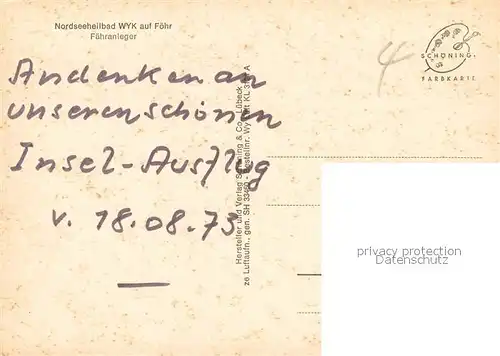 Nordseeheilbad WYK auf Föhr
Fähranleger
Andenken an
unseren schönen
Insel-Ausflug
v. 18.08.73
4
SCHÖNING
FARBKARTE
Hersteller und Verlag Schöning & Co., Lübeck
ze Luftaufn., gen. SH 334
privacy protection
Datenschutz